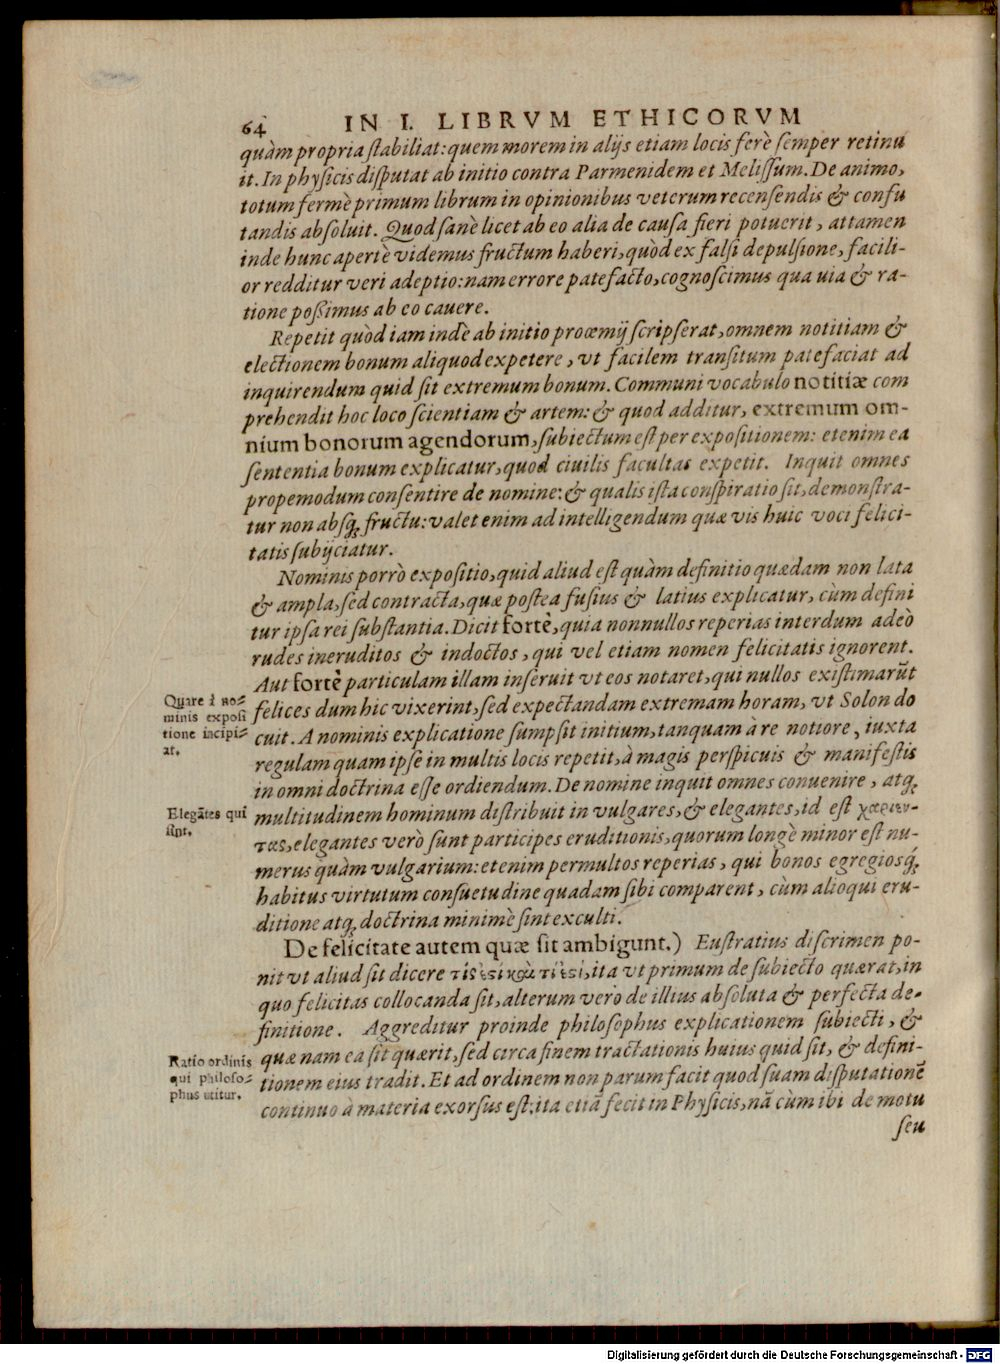 64 IN I. LIBRVM ETHICORVM
quàm propria stabiliat: quem morem in alijs etiam locis ferè semper retinu
it. In physicis disputat ab initio contra Parmenidem et Melissum. De animo,
totum fermè primum librum in opinionibus veterum recensendis & confu
tandis absoluit. Quod sanè licet ab eo alia de causa fieri potuerit, attamen
inde hunc apertè videmus fructum haberi, quòd ex falsi depulsione, facili-
or redditur veri adeptio: nam errore patefacto, cognoscimus qua uia & ra-
tione possimus ab eo cauere.
Repetit quòd iam inde ab initio proœmij scripserat, omnem notitiam &
electionem bonum aliquod expetere, vt facilem transitum patefaciat ad
inquirendum quid sit extremum bonum. Communi vocabulo notitiæ com
prehendit hoc loco scientiam & artem: & quod additur, extremum om-
nium bonorum agendorum, subiectum est per expositionem: etenim ea
sententia bonum explicatur, quod ciuilis facultas expetit. Inquit omnes
propemodum consentire de nomine: & qualis ista conspiratio sit, demonstra-
tur non absq; fructu: valet enim ad intelligendum quæ vis huic voci felici-
tatis subijciatur.
Nominis porrò expositio, quid aliud est quàm definitio quædam non lata
& ampla, sed contracta, quæ postea fusius & latius explicatur, cùm defini
tur ipsa rei substantia. Dicit fortè, quia nonnullos reperias interdum adeò
rudes ineruditos & indoctos, qui vel etiam nomen felicitatis ignorent.
Aut fortè particulam illam inseruit vt eos notaret, qui nullos existimarūt
Quare à no-
minis exposi
tione incipi-
at.
felices dum hic vixerint, sed expectandam extremam horam, vt Solon do
cuit. A nominis explicatione sumpsit initium, tanquam à re notiore, iuxta
regulam quam ipse in multis locis repetit, à magis perspicuis & manifestis
in omni doctrina esse ordiendum. De nomine inquit omnes conuenire, atq;
Elegātes qui
sint.
multitudinem hominum distribuit in vulgares, & elegantes, id est χαριεν-
τας, elegantes verò sunt participes eruditionis, quorum longè minor est nu-
merus quàm vulgarium: etenim permultos reperias, qui bonos egregiosq́;
habitus virtutum consuetudine quadam sibi comparent, cùm alioqui eru-
ditione atq; doctrina minimè sint exculti.
De felicitate autem quæ sit ambigunt.) Eustratius discrimen po-
nit vt aliud sit dicere τίς ἐςι καὶ τί ἐςι, ita vt primum de subiecto quærat, in
quo felicitas collocanda sit, alterum verò de illius absoluta & perfecta de-
finitione. Aggreditur proinde philosophus explicationem subiecti, &
Ratio ordinis
qui philoso-
phus utitur.
quæ nam ea sit quærit, sed circa finem tractationis huius quid sit, & defini-
tionem eius tradit. Et ad ordinem non parum facit quod suam disputationē
continuo à materia exorsus est: ita etiā fecit in Physicis, nā cùm ibi de motu
seu
Digitalisierung gefördert durch die Deutsche Forschungsgemeinschaft - DFG